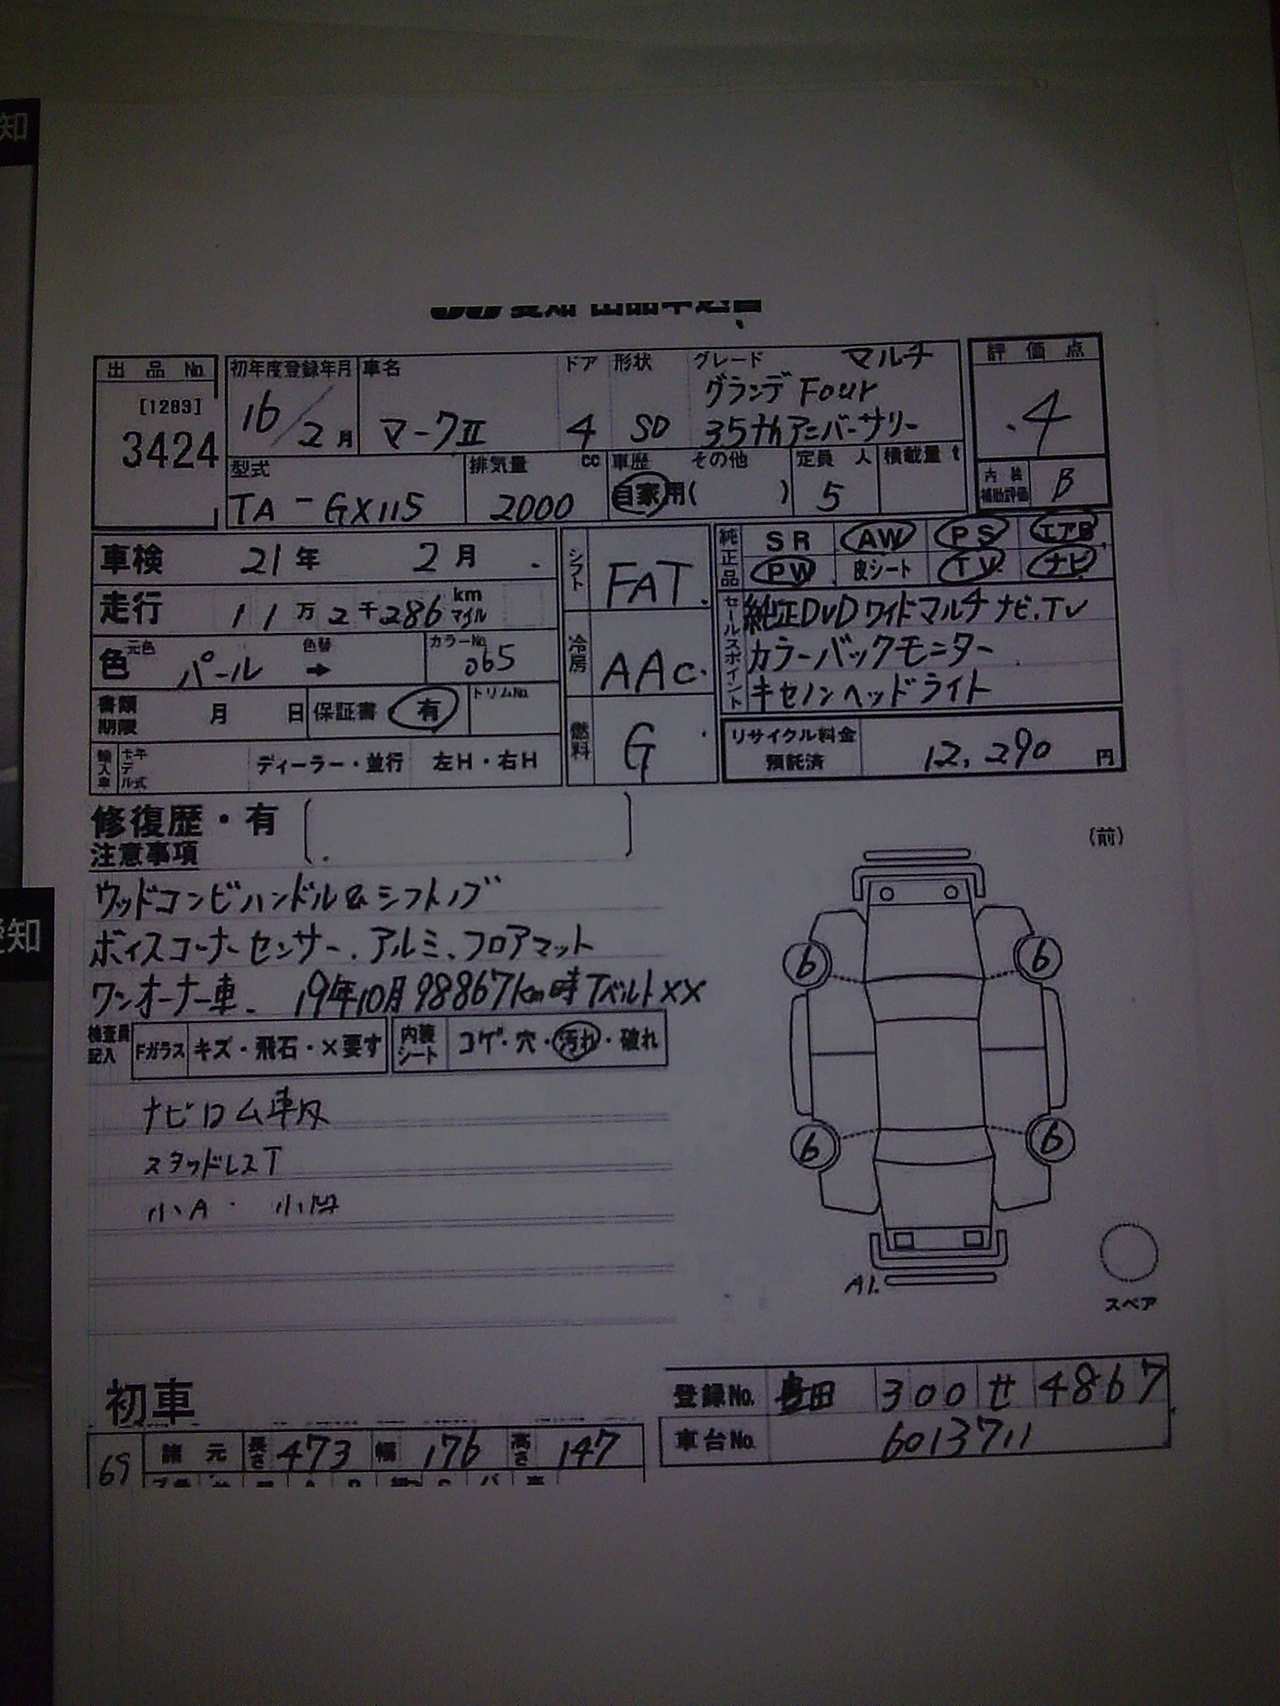 知
愛知 出品申込書
出品 No.
[1283]
3424
初年度登録年月
16/2月
車名
マークⅡ
ドア
4
形状
SD
グレード マルチ
グランデ Four
35thアニバーサリー
評価点
4
内装
補助評価
B
型式
TA-GX115
排気量 cc
2000
車歴 その他
自家用( )
定員 人
5
積載量 t
車検 21年 2月
走行 11万2千286 km マイル
色 元色 パール 色替 → カラーNo. 065
書類期限 月 日 保証書 有 トリムNo.
輸入車 モデル年式 ディーラー・並行 左H・右H
シフト FAT
冷房 AAC
燃料 G
純正品 SR AW PS エアB
PW 皮シート TV ナビ
セールスポイント
純正DVDワイドマルチナビ、TV
カラーバックモニター
キセノンヘッドライト
リサイクル料金
預託済
12,290円
修復歴・有
注意事項
(前)
ウッドコンビハンドル&シフトノブ
ボイスコーナーセンサー、アルミ、フロアマット
ワンオーナー車、 19年10月98867km時Tベルト××
愛知
検査員記入 Fガラス キズ・飛石・×要す 内装シート コゲ・穴・汚れ・破れ
ナビロム車内
スタッドレスT
小A・ 小凹
6 6
6 6
A1.
スペア
初車
登録No. 豊田 300 せ 4867
車台No. 6013711
69 諸元 長さ 473 幅 176 高さ 147